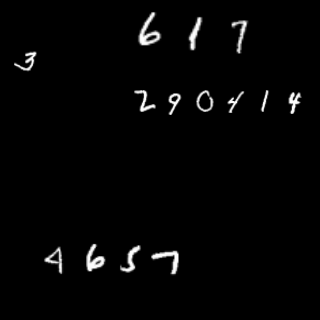 617
3
290414
4657